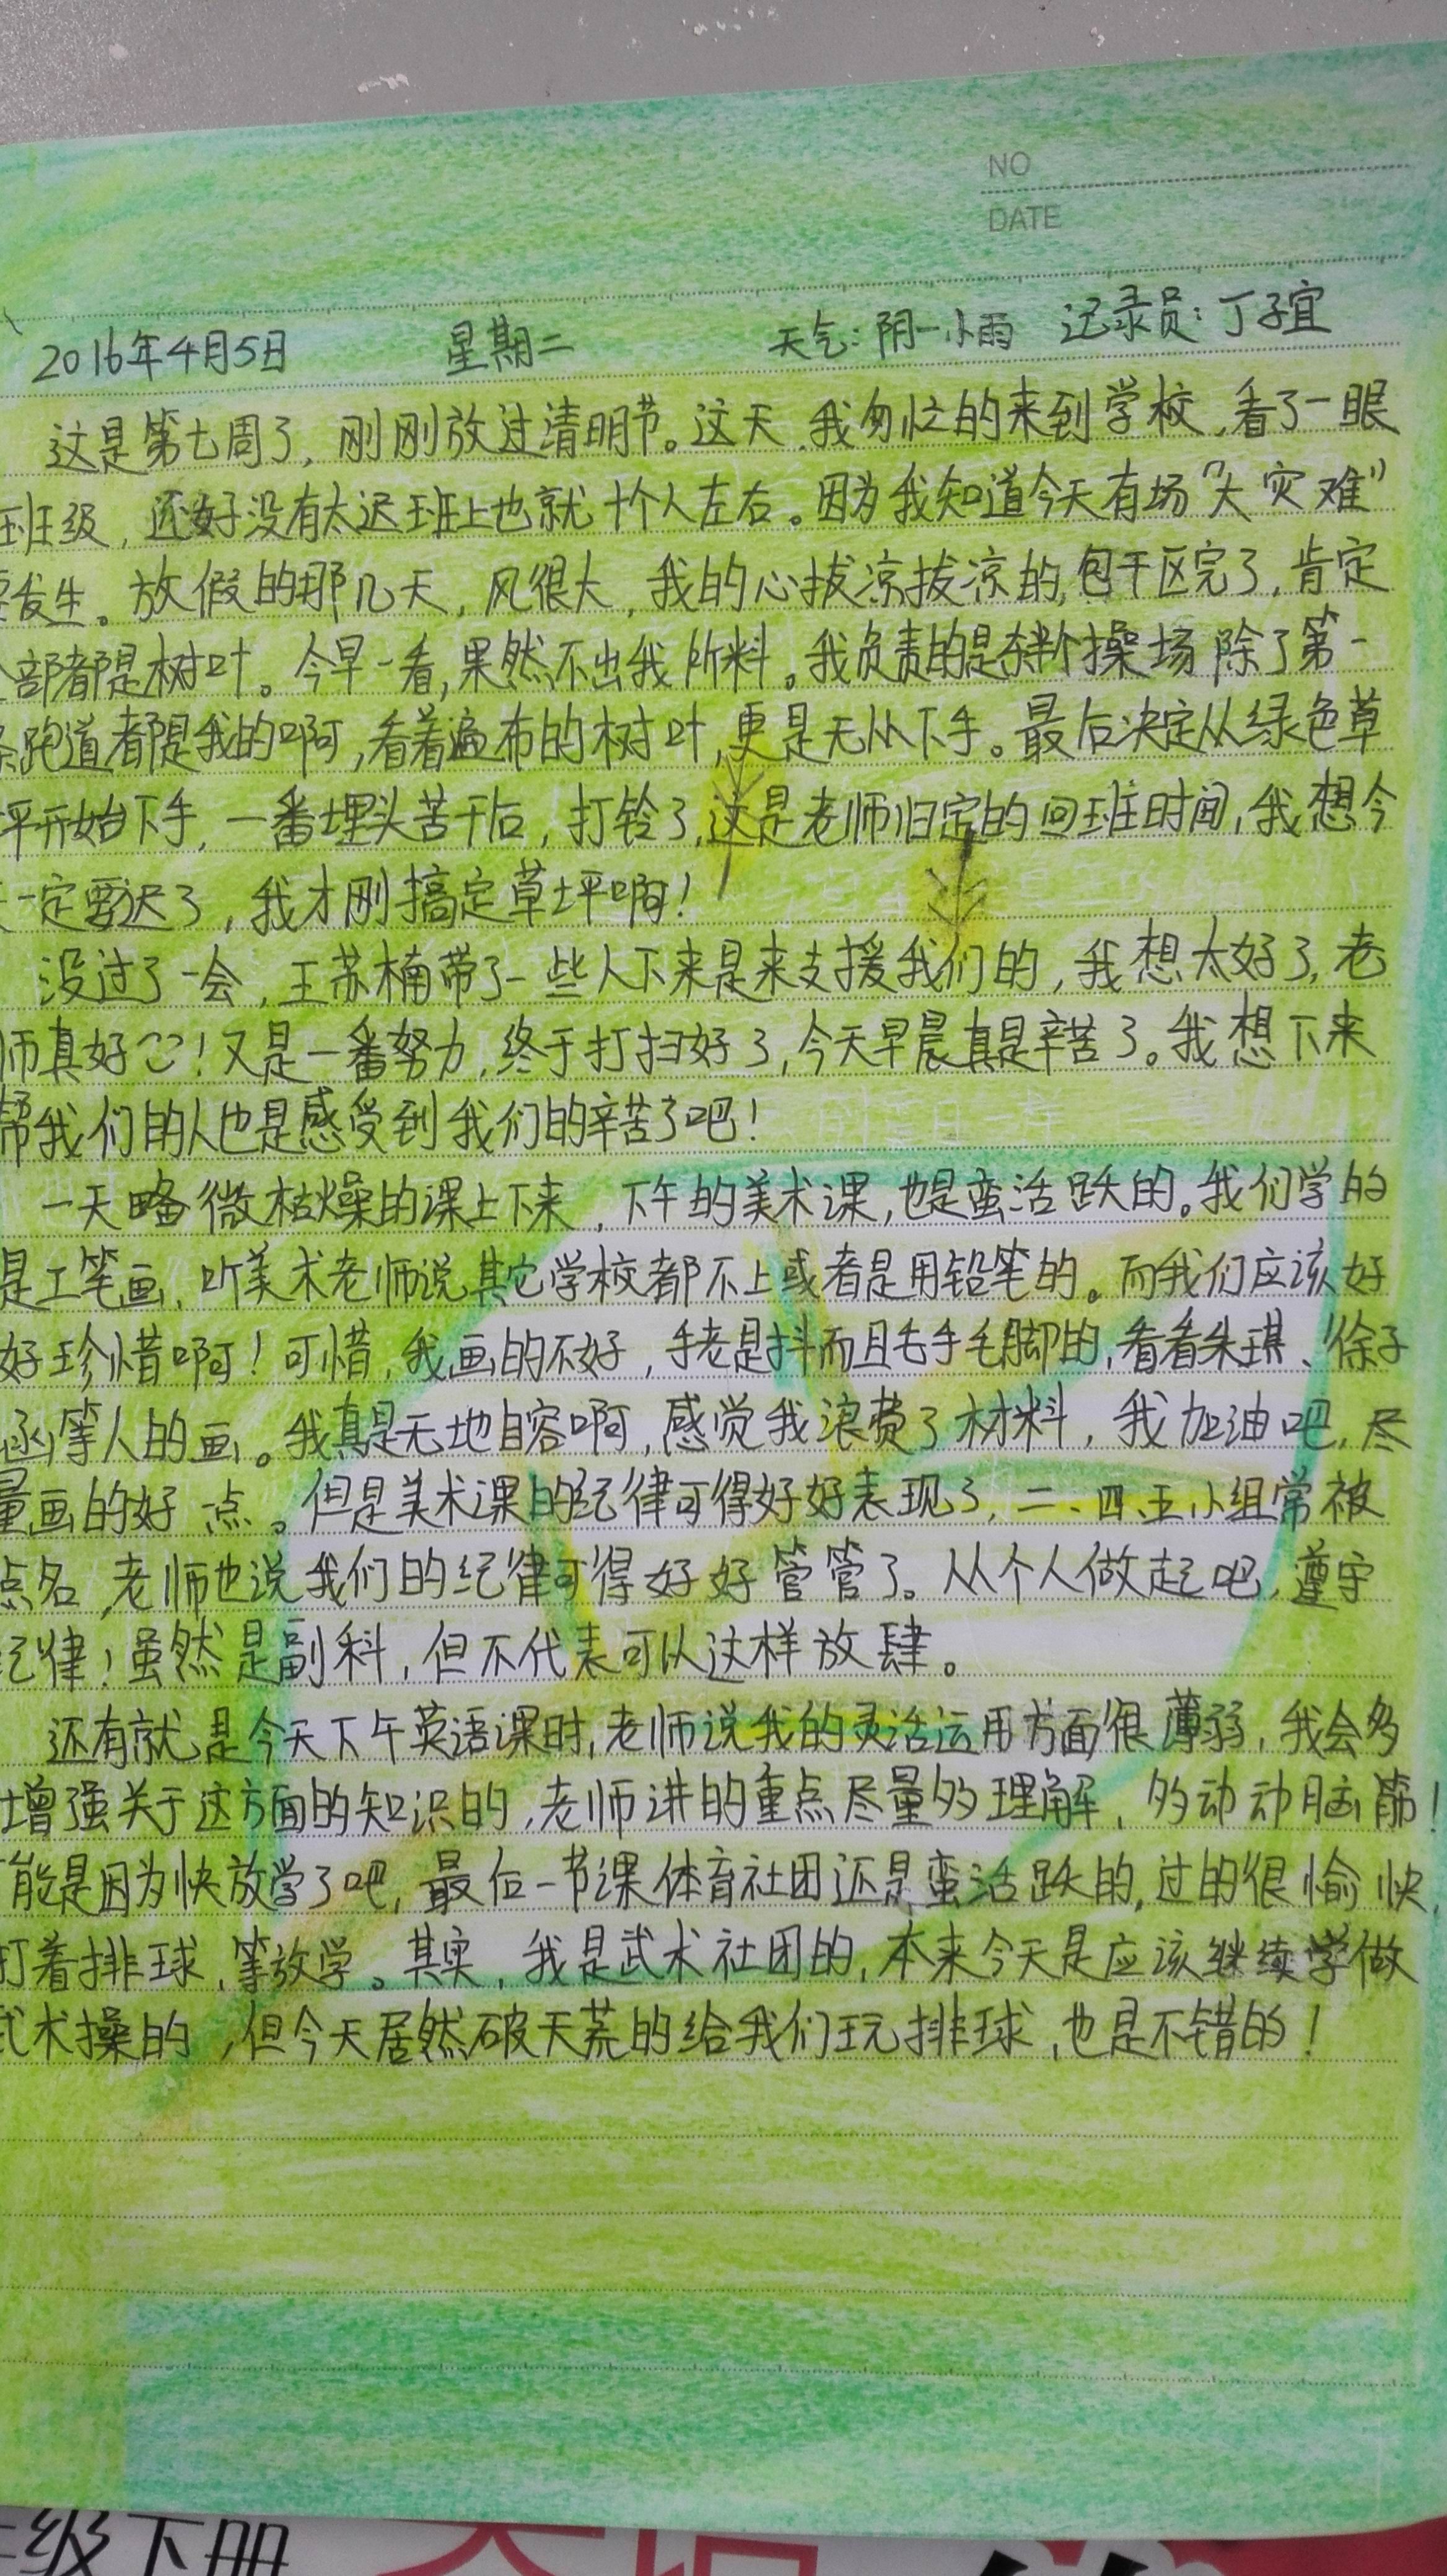 NO
DATE
2016年4月5日 星期二 天气:阴一小雨 记录员:丁子宜
这是第七周了,刚刚放过清明节。这天,我匆忙的来到学校,看了一眼
班级,还好没有太迟班上也就十个人左右。因为我知道今天有场“大灾难”
发生。放假的那几天,风很大,我的心拔凉拔凉的,包干区完了,肯定
部都是树叶。今早一看,果然不出我所料。我负责的是半个操场除了第一
跑道都是我的啊,看着遍布的树叶,更是无从下手。最后决定从绿色草
坪开始下手,一番埋头苦干后,打铃了,这是老师归定的回班时间,我想今
一定要迟了,我才刚搞定草坪啊!
没过了一会,王苏楠带了一些人下来是来支援我们的,我想太好了,老
师真好!又是一番努力,终于打扫好了,今天早晨真是辛苦了。我想下来
帮我们的人也是感受到我们的辛苦了吧!
一天略微枯燥的课上下来,下午的美术课,也是蛮活跃的。我们学的
是工笔画,听美术老师说其它学校都不上或者是用铅笔的。而我们应该好
好珍惜啊!可惜,我画的不好,手老是抖而且毛手毛脚的,看看朱琪、徐子
涵等人的画。我真是无地自容啊,感觉我浪费了材料,我加油吧,尽
量画的好一点。但是美术课的纪律可得好好表现了,二、四、五小组常被
点名,老师也说我们的纪律可得好好管管了。从个人做起吧,遵守
纪律!虽然是副科,但不代表可以这样放肆。
还有就是今天下午英语课时,老师说我的灵活运用方面很薄弱,我会多
增强关于这方面的知识的,老师讲的重点尽量多理解,多动动脑筋!
能是因为快放学了吧,最后一节课体育社团还是蛮活跃的,过的很愉快,
打着排球,等放学。其实,我是武术社团的,本来今天是应该继续学做
武术操的,但今天居然破天荒的给我们玩排球,也是不错的!
级下册